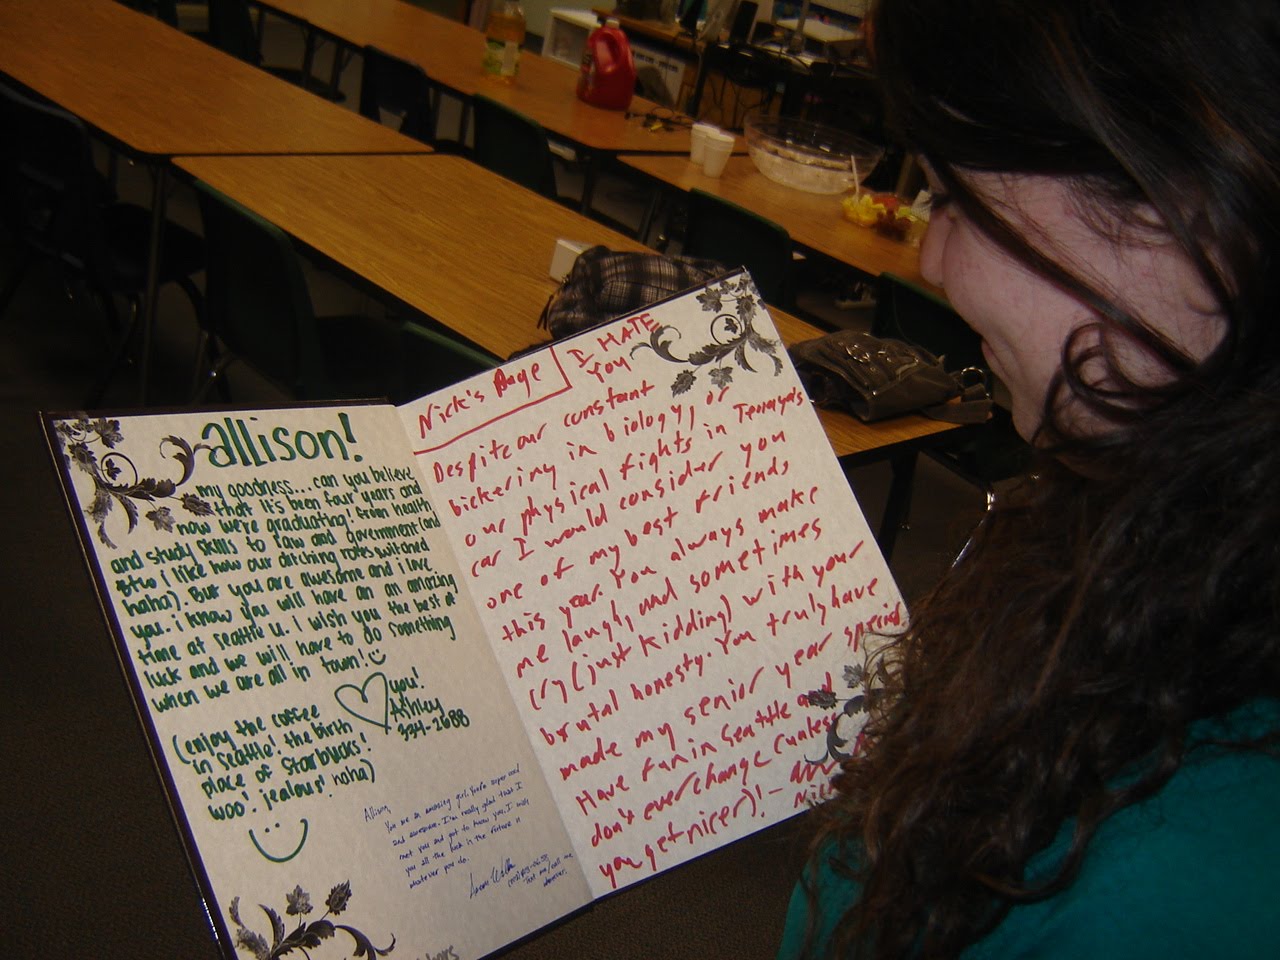 allison!
my goodness...can you believe
that it's been four years and
now we're graduating! From health
and study skills to law and government (and
btw i like how our ditching roles switched
haha). But you are awesome and i love
you. i know you will have an an amazing
time at seattle u. I wish you the best of
luck and we will have to do something
when we are all in town!
you!
Ashley
334-2688
(enjoy the coffee
in seattle! the birth
place of starbucks!
woo! jealous! haha)
Allison,
You are an amazing girl. You're super cool
and awesome. I'm really glad that I
met you and got to know you. I wish
you all the luck in the future in
whatever you do.
Text me/call me
whenever.
Nick's Page
I HATE
YOU
Despite our constant
bickering in biology, or
our physical fights in Tennyson's
car I would consider you
one of my best friends
this year. You always make
me laugh, and sometimes
cry (just kidding) with your
brutal honesty. You truly have
made my senior year special.
Have fun in Seattle and
don't ever change (unless
you get nicer)! -
Nick